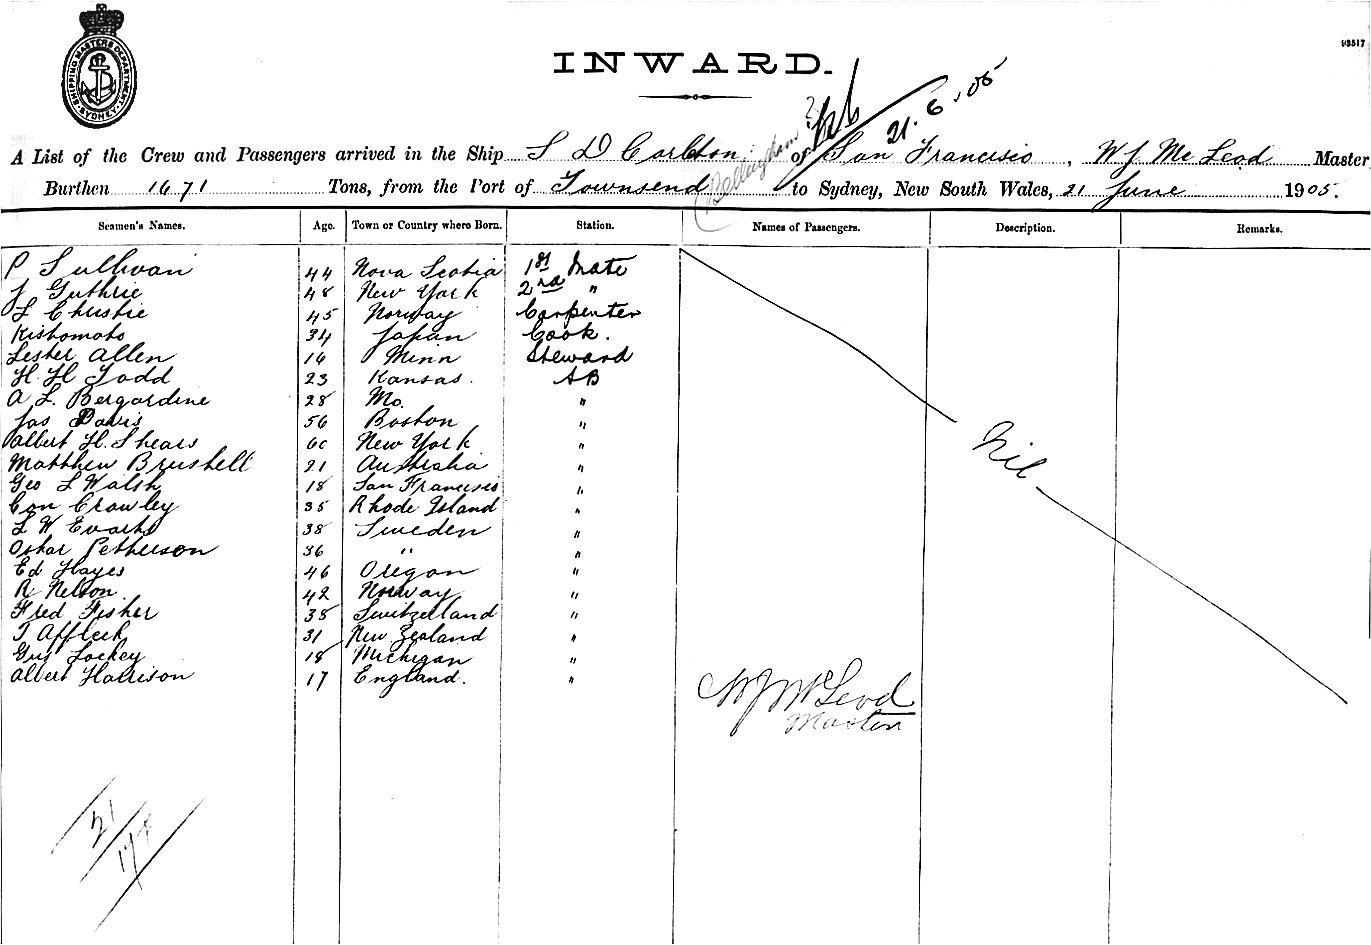 SHIPPING MASTERS DEPARTMENT. SYDNEY
93517
INWARD.
21.6.05
A List of the Crew and Passengers arrived in the Ship S D Carlton of San Francisco, W J McLeod Master
Burthen 1671 Tons, from the Port of Townsend (Bellingham ?) to Sydney, New South Wales, 21 June 1905.
Seamen's Names. Age. Town or Country where Born. Station. Names of Passengers. Description. Remarks.
P Sullivan 44 Nova Scotia 1st Mate
J Guthrie 48 New York 2nd "
L Christie 45 Norway Carpenter
Kishomoto 34 Japan Cook.
Lester Allen 16 Minn Steward
H. H Todd 23 Kansas. AB
A L. Bergardine 28 Mo. "
Jas Davis 56 Boston "
Albert H. Shears 60 New York "
Matthew Brushell 21 Australia "
Geo L Walsh 18 San Francisco "
Con Crowley 35 Rhode Island "
L W Evarts 38 Sweden "
Oskar Petherson 36 " "
Ed Hayes 46 Oregon "
R Nelson. 42 Norway "
Fred Fisher 38 Switzelland "
T Affleck 31 New Zealand "
Gus Lockey 18 Michigan "
Albert Harrison 17 England. "
Nil
W J McLeod
Master
21